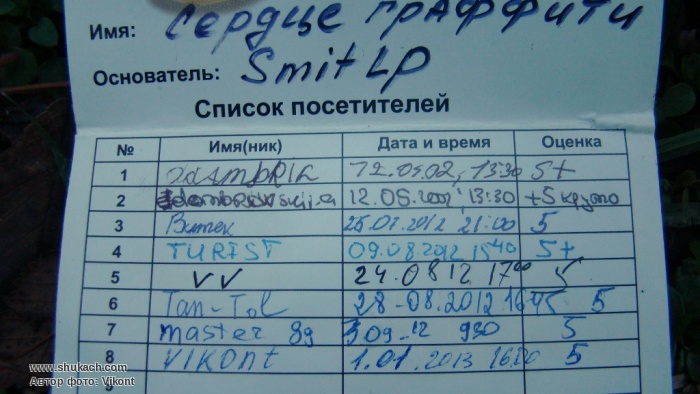 Имя: Сердце граффити
Основатель: Smit LP
Список посетителей
№ Имя(ник) Дата и время Оценка
1 13:30 5+
2 13:30 +5 круто
3 Витек 25.07.2012 21:00 5
4 TURIST 09.08.2012 15 40 5+
5 VV 24.08 12 17 00
6 Tan-Tol 28-08.2012 16 45 5
7 master 89 3 09-12 930 5
8 VIKONt 1.01.2013 16:00 5
9
www.shukach.com
Автор фото: Vjkont